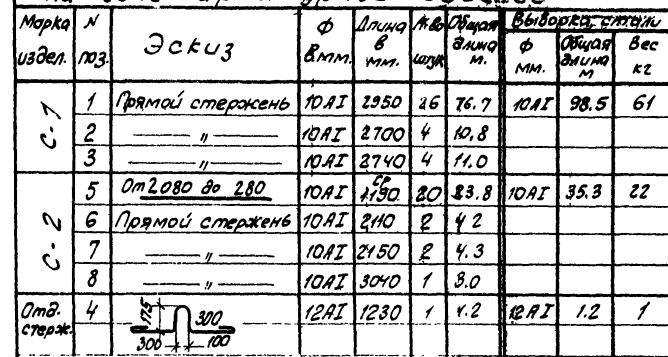 Марка издел. N поз. Эскиз Ф в мм. Длина в мм. К-во штук Общая длина м. Выборка стали Ф мм. Общая длина м Вес кг
С-1 1 Прямой стержень 10AI 2950 26 76.7 10AI 98.5 61
2 —— „ —— 10AI 2700 4 10,8
3 —— „ —— 10AI 2740 4 11.0
С-2 5 От 2080 до 280 10AI ср 1190 20 23.8 10AI 35.3 22
6 Прямой стержень 10AI 2110 2 4 2
7 —— „ —— 10AI 2150 2 4.3
8 —— „ —— 10AI 3040 1 3.0
Отд. стерж. 4 175 300 300 100 12AI 1230 1 1.2 12AI 1.2 1